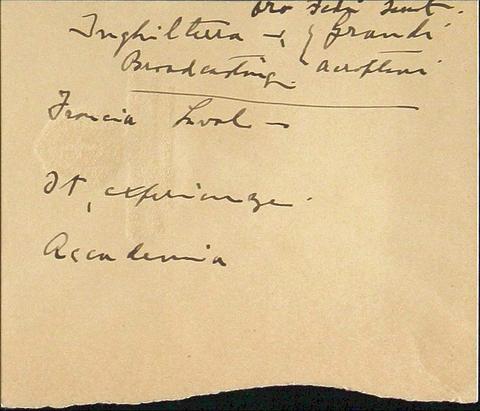 Inghilterra - Grandi
Broadcasting Aeroplani
Francia Laval -
It, experienze.
Accademia